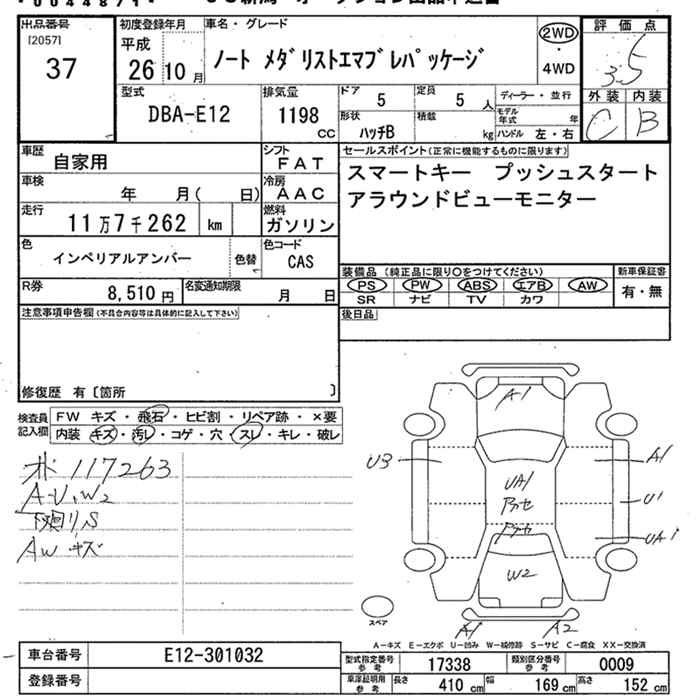 出品番号
[2057]
37
初度登録年月
平成
26 10 月
車名・グレード
ノート メダリストエマブレパッケージ
2WD
・
4WD
評 価 点
3.5
外装 内装
C B
型式
DBA-E12
排気量
1198
CC
ドア
5
定員
5 人
形状
ハッチB
積載
kg
ディーラー・並行
モデル年式 年
ハンドル 左・右
車歴
自家用
シフト
FAT
車検
年 月( 日)
冷房
AAC
走行
11万7千262 km
燃料
ガソリン
色
インペリアルアンバー
色替
色コード
CAS
R券
8,510 円
名変通知期限
月 日
セールスポイント(正常に機能するものに限ります)
スマートキー プッシュスタート
アラウンドビューモニター
装備品 (純正品に限り〇をつけてください)
PS PW ABS エアB AW
SR ナビ TV カワ
新車保証書
有・無
後日品
注意事項申告欄(不具合内容等は具体的に記入して下さい)
修復歴 有〔箇所 〕
検査員
記入欄
FW キズ・飛石・ヒビ割・リペア跡・×要
内装 キズ・汚レ・コゲ・穴・スレ・キレ・破レ
117263
A-U、W2
下廻り、S
AW キズ
A1
U3
A1
UA1
U1
UA1
W2
A1 A2
スペア
A-キズ E-エクボ U-凹み W-補修跡 S-サビ C-腐食 XX-交換済
車台番号
E12-301032
登録番号
型式指定番号
参 考
17338
類別区分番号
参 考
0009
車庫証明用
参 考
長さ
410 cm
幅
169 cm
高さ
152 cm